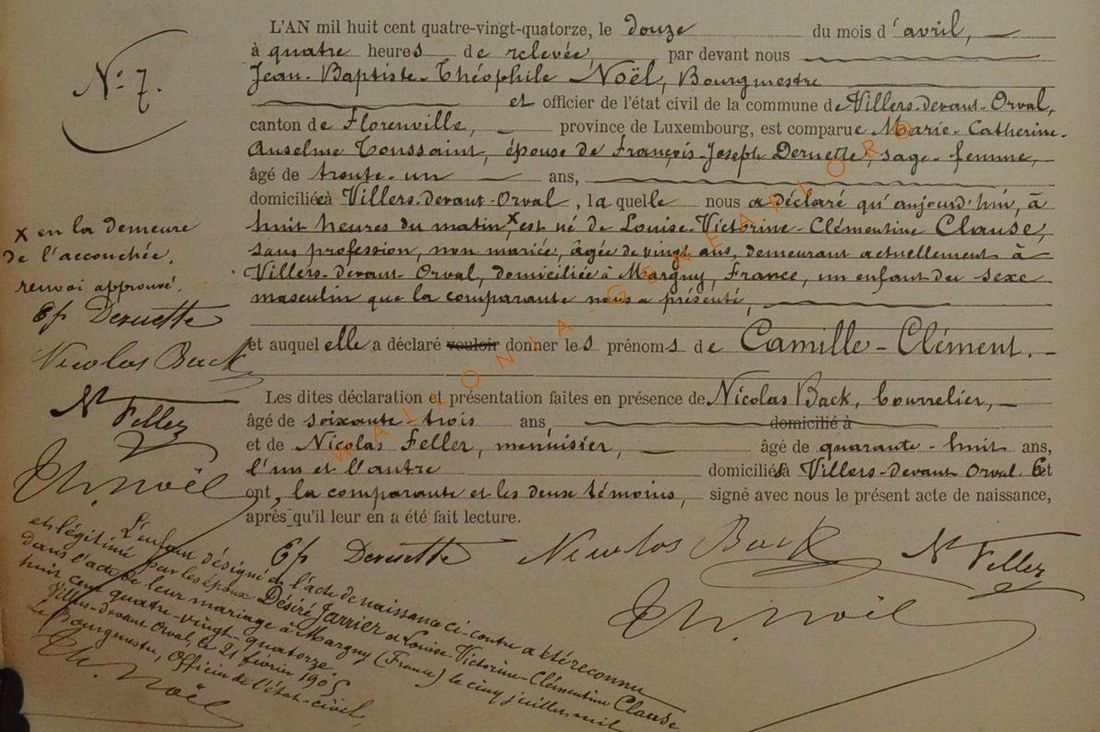 N° 7.
L'AN mil huit cent quatre-vingt-quatorze, le douze du mois d'avril,
à quatre heures de relevée, par devant nous
Jean-Baptiste-Théophile Noël, Bourgmestre
et officier de l'état civil de la commune de Villers-devant-Orval,
canton de Florenville, province de Luxembourg, est comparue Marie-Catherine-
Anselme Toussaint, épouse de François-Joseph Deruette, sage-femme,
âgé de trente-un ans,
domiciliée à Villers-devant-Orval, laquelle nous a déclaré qu'aujourd'hui, à
huit heures du matin x, est né de Louise-Victorine-Clémentine Clause,
sans profession, non mariée, âgée de vingt ans, demeurant actuellement à
Villers-devant-Orval, domiciliée à Margny, France, un enfant du sexe
masculin que la comparante nous a présenté,
et auquel elle a déclaré vouloir donner les prénoms de Camille-Clément.
Les dites déclaration et présentation faites en présence de Nicolas Back, bourrelier,
âgé de soixante-trois ans, domicilié à
et de Nicolas Feller, menuisier, âgé de quarante-huit ans,
l'un et l'autre domiciliés à Villers-devant-Orval. Et
ont, la comparante et les deux témoins, signé avec nous le présent acte de naissance,
après qu'il leur en a été fait lecture.
Ep Deruette Nicolas Back Ns Feller
Th. Noël
x en la demeure
de l'accouchée,
renvoi approuvé.
Ep Deruette
Nicolas Back
Ns Feller
Th. Noël
L'enfant désigné en l'acte de naissance ci-contre a été reconnu
et légitimé par les époux Désiré Jarrier et Louise-Victorine-Clémentine Clause
dans l'acte de leur mariage à Margny (France) le cinq juillet mil
huit cent quatre-vingt-quatorze.
Villers-devant-Orval, le 21 février 1905
Le Bourgmestre, Officier de l'état-civil,
Th. Noël
WALLONIA-GENEAFLORE